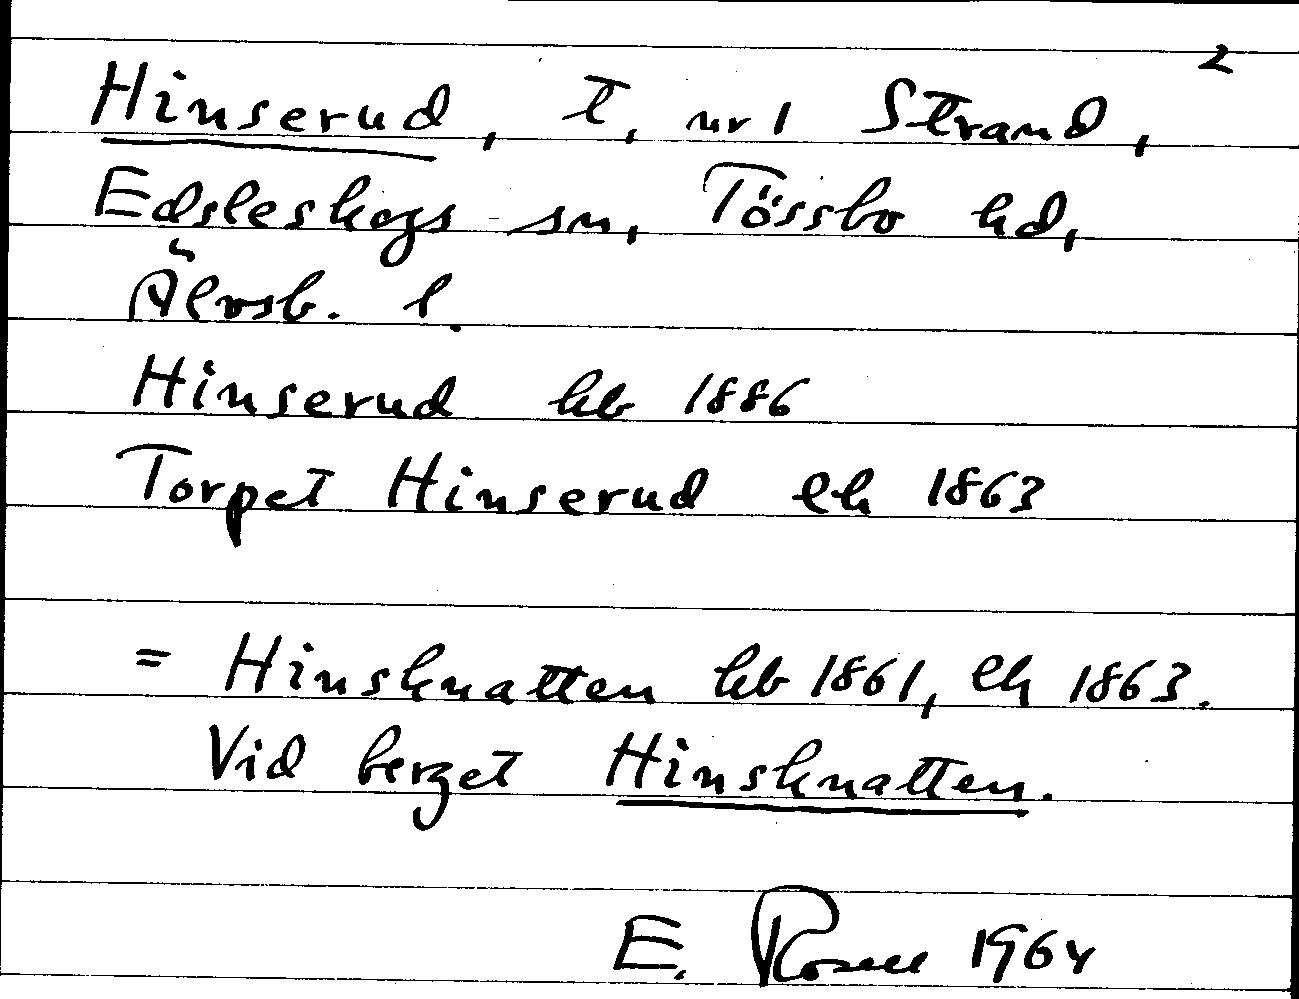 2
Hinserud, t, nr 1 Strand,
Edsleskogs sn, Tössbo hd,
Älvsb. l.
Hinserud hb 1886
Torpet Hinserud lh 1863
= Hinsknatten hb 1861, lh 1863.
Vid berget Hinsknatten.
E. Rosell 1964